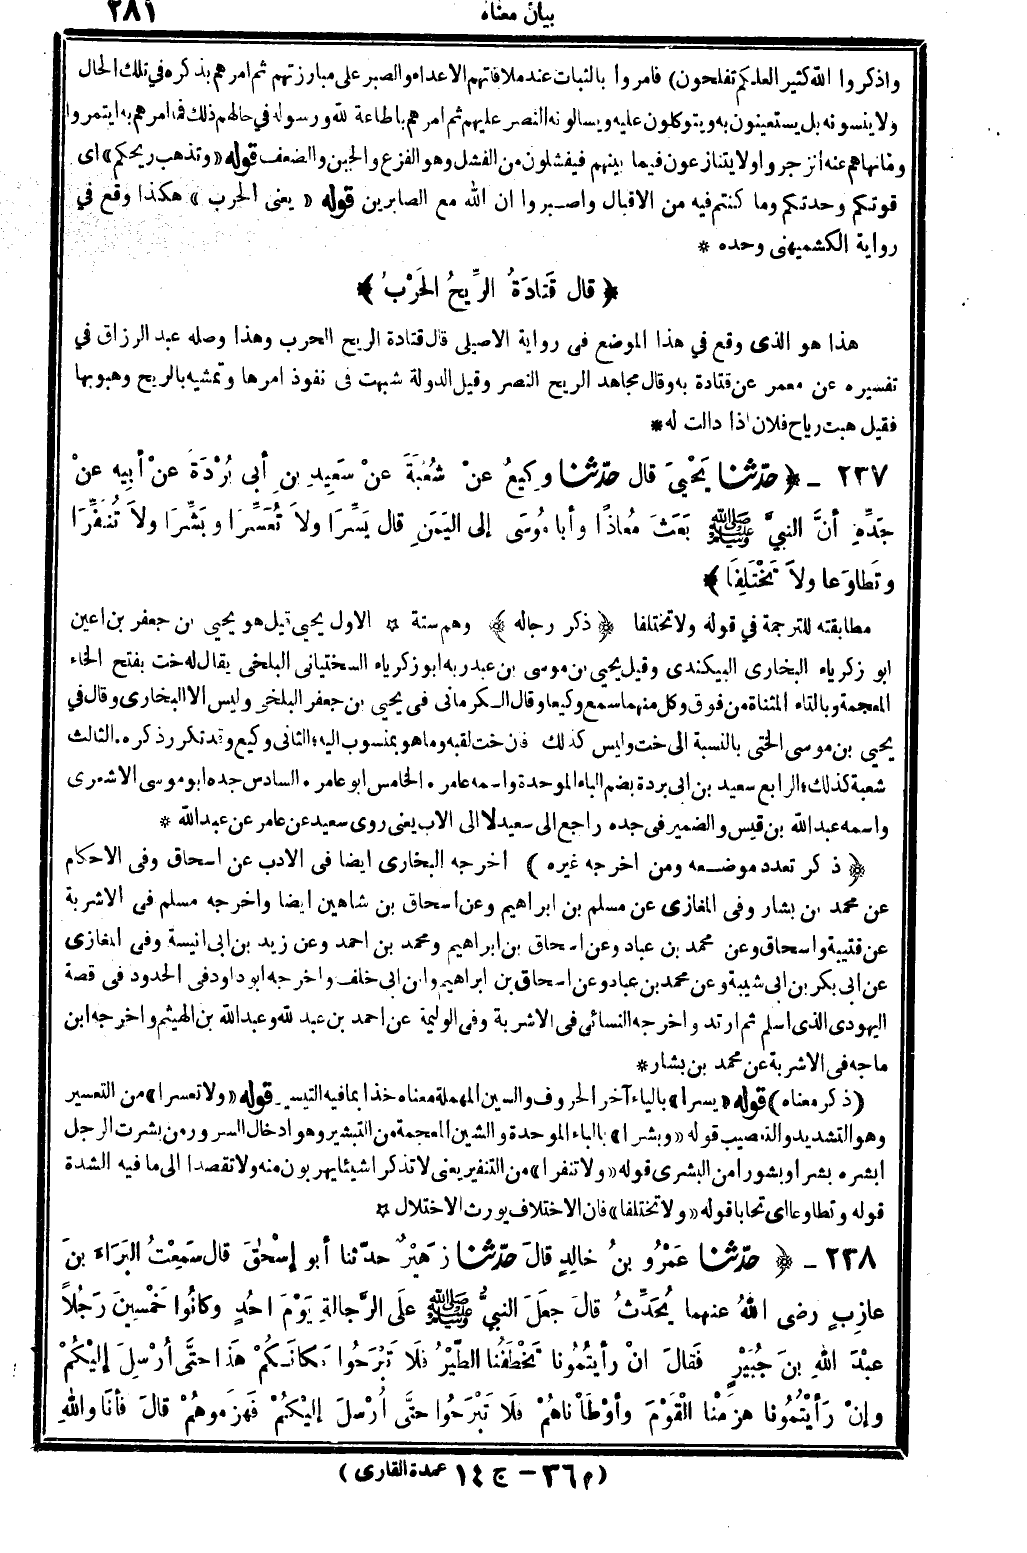 بيان معناه ٢٨١
واذكروا الله كثيرا لعلكم تفلحون) فامروا بالثبات عند ملاقاتهم الاعداء والصبر على مبارزتهم ثم امرهم بذكره في تلك الحال
ولا ينسونه بل يستعينون به ويتوكلون عليه ويسالونه النصر عليهم ثم امرهم باطاعة لله ورسوله في حالهم ذلك فما امرهم به ايتمروا
ومانهاهم عنه انزجروا ولا يتنازعون فيما بينهم فيفشلون من الفشل وهو الفزع والجبن والضعف قوله «وتذهب ريحكم» اى
قوتكم وحدتكم وما كنتم فيه من الاقبال واصبروا ان الله مع الصابرين قوله « يعنى الحرب » هكذا وقع في
رواية الكشميهنى وحده *
﴿ قال قَتَادَةُ الرِّيحُ الحَرْبُ ﴾
هذا هو الذى وقع في هذا الموضع فى رواية الاصيلى قال قتادة الريح الحرب وهذا وصله عبد الرزاق في
تفسيره عن معمر عن قتادة به وقال مجاهد الريح النصر وقيل الدولة شبهت فى نفوذ امرها وتمشيه بالريح وهبوبها
فقيل هبت رياح فلان اذا دالت له *
٢٣٧ ـ ﴿ حدّثنا يَحْيىَ قال حدّثنا وكِيعُ عنْ شُعْبَةَ عنْ سَعِيدِ بنِ أبى بُرْدَةَ عنْ أبِيهِ عنْ
جَدِّهِ أنَّ النبيَّ ﷺ بَعَثَ مُعَاذًا وأبا مُوسَى إلى اليَمَنِ قال يَسِّرَا ولاَ تُعَسِّرَا وبَشِّرَا ولاَ تُنَفِّرَا
وتَطاوَعا ولاَ تَخْتَلِفَا ﴾
مطابقته للترجمة في قوله ولا تختلفا ﴿ ذكر رجاله ﴾ وهم ستة ☆ الاول يحيى قيل هو يحيى بن جعفر بن اعين
ابو زكرياء البخارى البيكندى وقيل يحيى بن موسى بن عبدربه ابو زكرياء السختيانى البلخى يقال له خت بفتح الخاء
المعجمة وبالتاء المثناة من فوق وكل منهما سمع وكيعا وقال الكرمانى فى يحيى بن جعفر البلخى وليس الا البخارى وقال في
يحيى بن موسى الختى بالنسبة الى خت وليس كذلك فان خت لقبه وما هو بمنسوب اليه؛ الثانى وكيع وقد تكرر ذكره . الثالث
شعبة كذلك؛ الرابع سعيد بن ابى بردة بضم الباء الموحدة واسمه عامر . الخامس ابو عامر . السادس جده ابو موسى الاشعرى
واسمه عبد الله بن قيس والضمير فى جده راجع الى سعيد لا الى الاب يعنى روى سعيد عن عامر عن عبد الله *
﴿ ذكر تعدد موضعه ومن اخرجه غيره ﴾ اخرجه البخارى ايضا فى الادب عن اسحاق وفى الاحكام
عن محمد بن بشار وفى المغازى عن مسلم بن ابراهيم وعن اسحاق بن شاهين ايضا واخرجه مسلم فى الاشربة
عن قتيبة واسحاق وعن محمد بن عباد وعن اسحاق بن ابراهيم ومحمد بن احمد وعن زيد بن ابى انيسة وفى المغازى
عن ابى بكر بن ابى شيبة وعن محمد بن عباد وعن اسحاق بن ابراهيم وابن ابى خلف واخرجه ابو داود فى الحدود فى قصة
اليهودى الذى اسلم ثم ارتد واخرجه النسائى فى الاشربة وفى الوليمة عن احمد بن عبد لله وعبد الله بن الهيثم واخرجه ابن
ماجه فى الاشربة عن محمد بن بشار *
(ذكر معناه) قوله «يسرا» بالياء آخر الحروف والسين المهملة معناه خذا بما فيه التيسير قوله «ولا تعسرا» من التعسير
وهو التشديد والتصيب قوله «وبشرا» بالباء الموحدة والشين المعجمة من التبشير وهو ادخال السرور من بشرت الرجل
ابشره بشرا وبشورا من البشرى قوله «ولا تنفرا» من التنفير يعنى لا تذكرا شيئا يهربون منه ولا تقصدا الى ما فيه الشدة
قوله وتطاوعا اى تحابا قوله «ولا تختلفا» فان الاختلاف يورث الاختلال ☆
٢٣٨ ـ ﴿ حدّثنا عَمْرُو بنُ خالِدٍ قالَ حدّثنا زهَيْرٌ حدّثنا أبو إسْحٰقَ قال سَمِعْتُ البَرَاءَ بنَ
عازِبٍ رضى اللهُ عنهما يُحَدِّثُ قالَ جعَلَ النبيُّ ﷺ علَى الرَّجالةِ يَوْمَ احُدٍ وكانُوا خَمْسِينَ رَجُلاً
عبْدَ اللهِ بنَ جُبَيْرٍ فَقالَ انْ رأيتُمُونا تَخْطَفُنا الطَّيْرُ فَلَا تَبْرَحُوا مَكانَكمْ هَذا حتَّى أُرْسِلَ إليْكُمْ
وإنْ رَأيْتُمُونا هزَمْنا القَوْمَ وأوْطَأْناهُمْ فَلَا تَبْرَحُوا حتَّى أُرْسلَ اليْكُمْ فَهزَموهُمْ قالَ فأنا واللهِ
(م ٣٦ - ج ١٤ عمدة القارى)